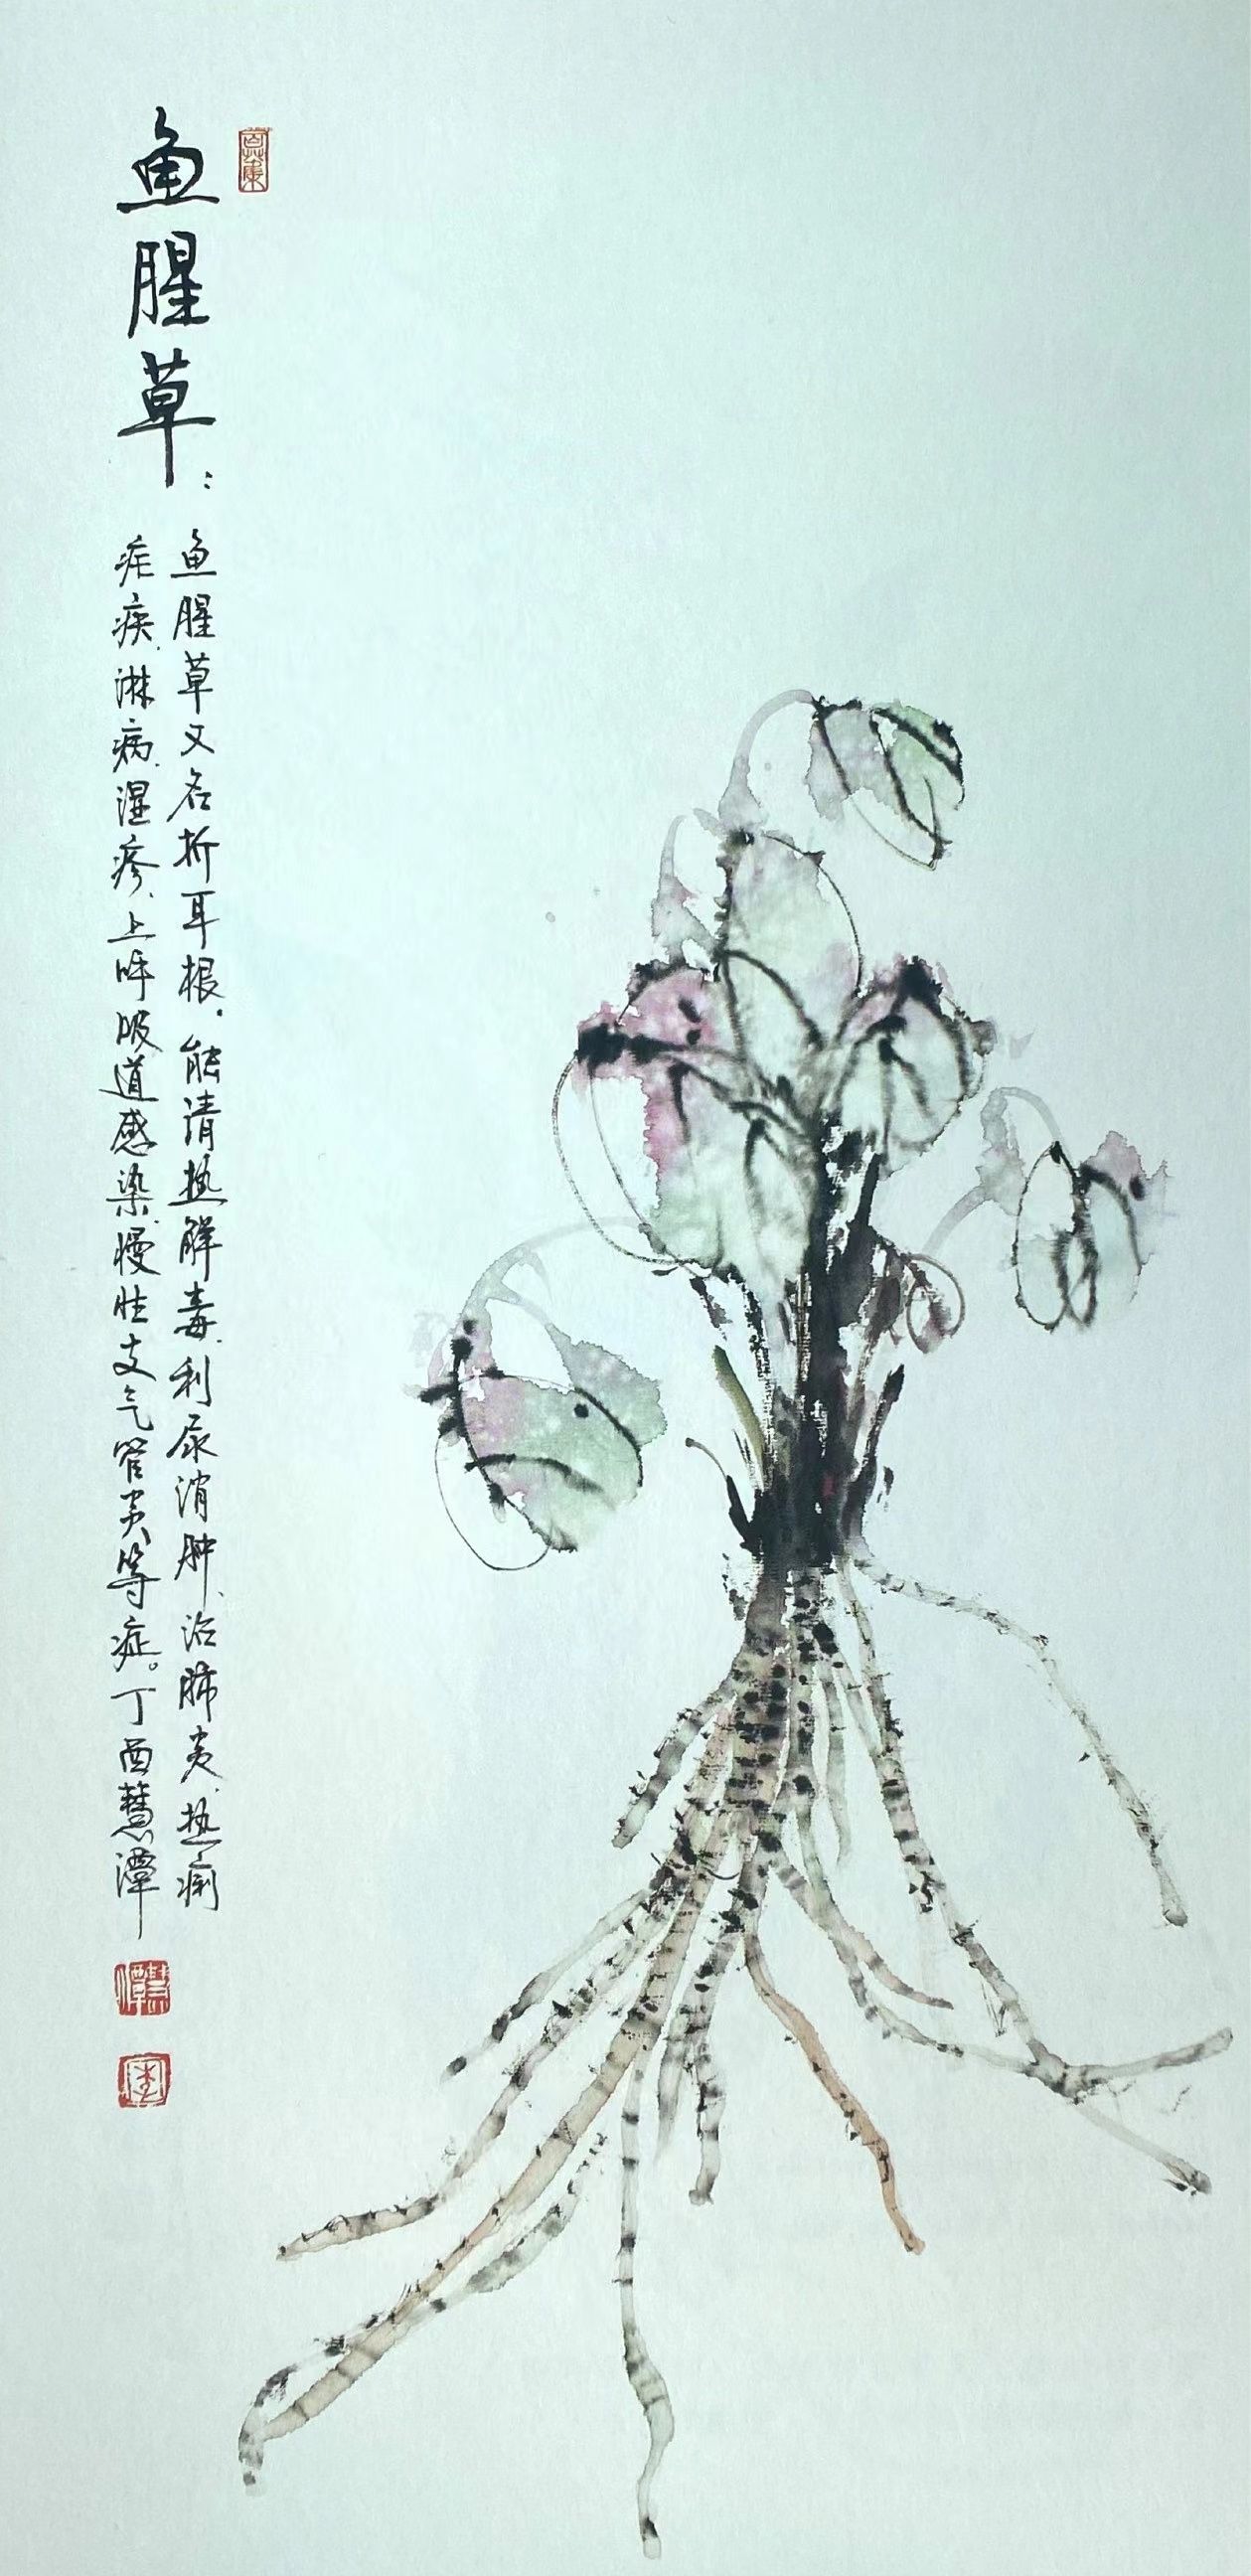 鱼腥草：
鱼腥草又名折耳根．能清热解毒、利尿消肿、治肺炎、热痢
疟疾、淋病、湿疹、上呼吸道感染、慢性支气管炎等症。丁酉慧潭
慧潭
李